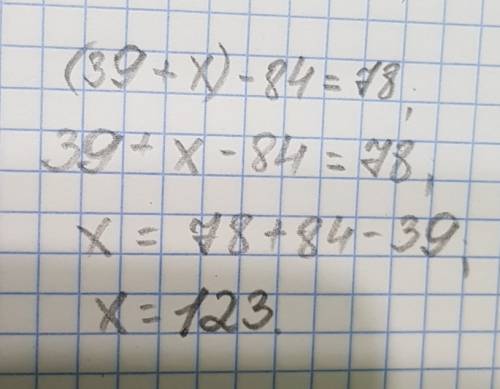 (39 + x) - 84 = 78;
39 + x - 84 = 78,
x = 78 + 84 - 39;
x = 123.